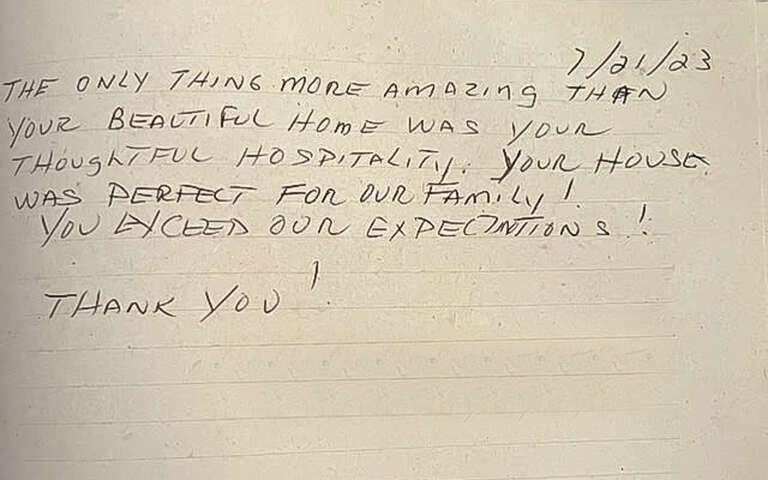 7/21/23
THE ONLY THING MORE AMAZING THAN
YOUR BEAUTIFUL HOME WAS YOUR
THOUGHTFUL HOSPITALITY. YOUR HOUSE
WAS PERFECT FOR OUR FAMILY!
YOU EXCEED OUR EXPECTATIONS!
THANK YOU!